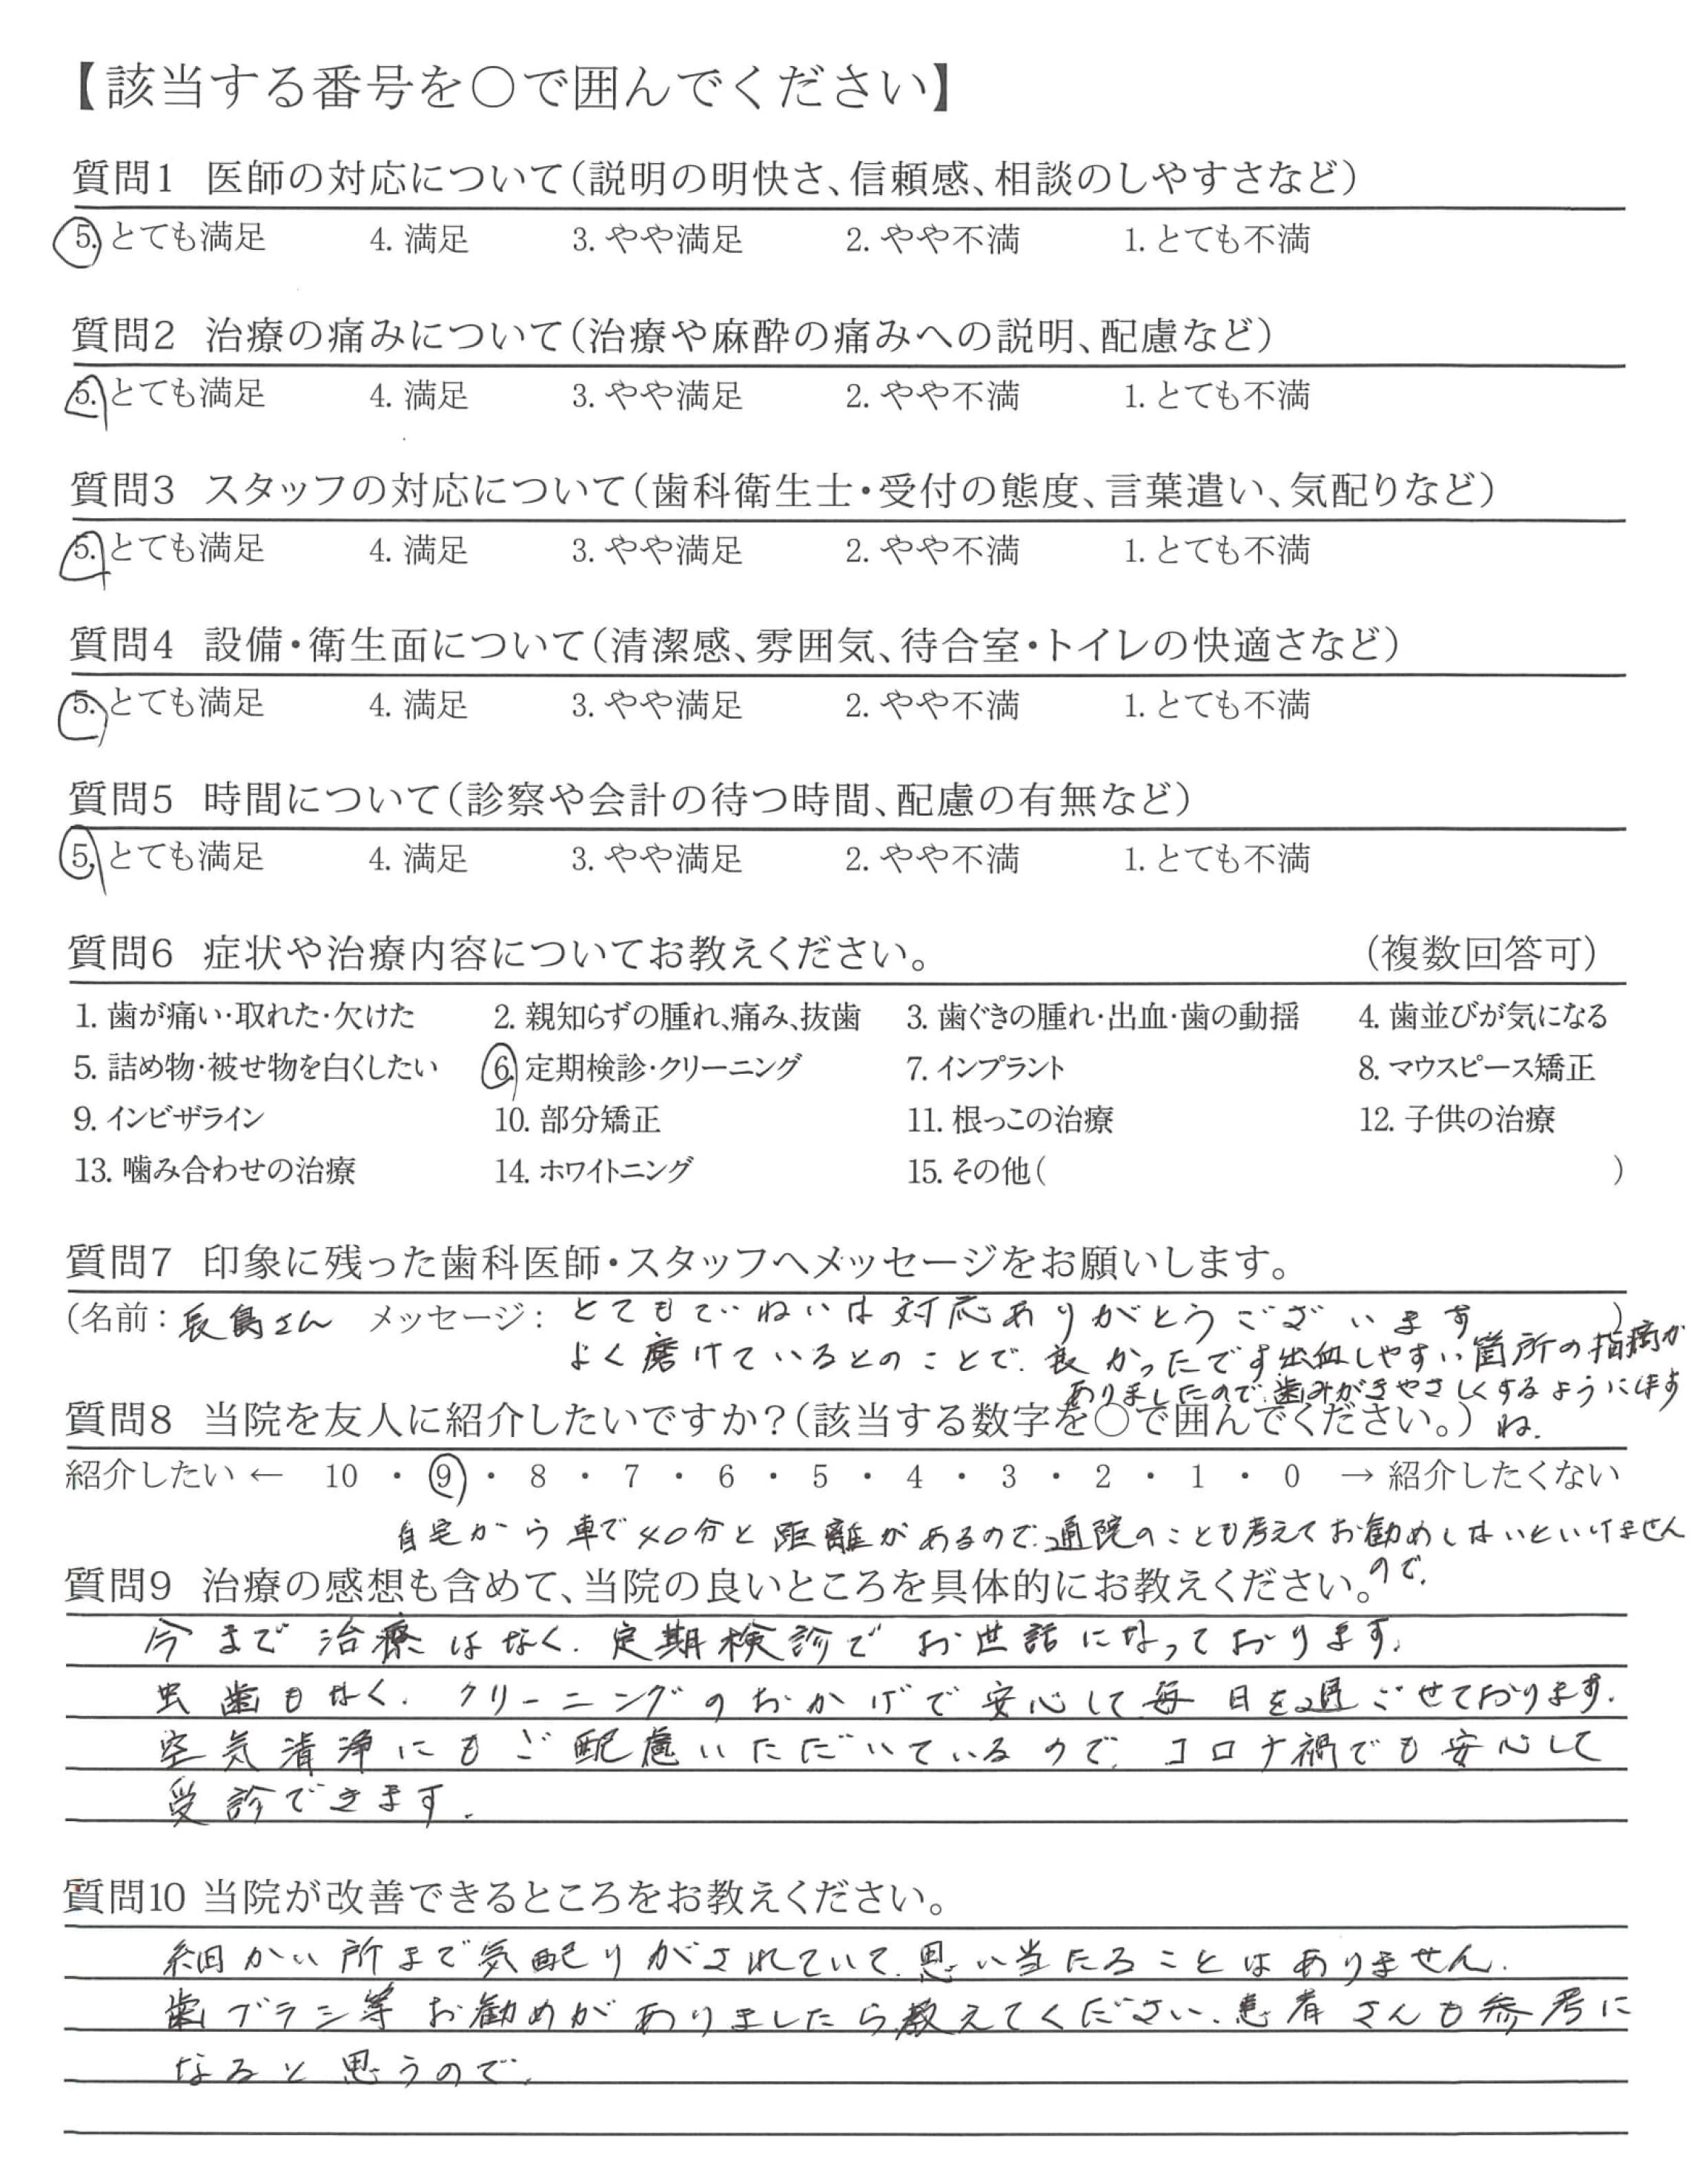 【該当する番号を〇で囲んでください】
質問1 医師の対応について(説明の明快さ、信頼感、相談のしやすさなど)
5. とても満足 4. 満足 3. やや満足 2. やや不満 1. とても不満
質問2 治療の痛みについて(治療や麻酔の痛みへの説明、配慮など)
5. とても満足 4. 満足 3. やや満足 2. やや不満 1. とても不満
質問3 スタッフの対応について(歯科衛生士・受付の態度、言葉遣い、気配りなど)
5. とても満足 4. 満足 3. やや満足 2. やや不満 1. とても不満
質問4 設備・衛生面について(清潔感、雰囲気、待合室・トイレの快適さなど)
5. とても満足 4. 満足 3. やや満足 2. やや不満 1. とても不満
質問5 時間について(診察や会計の待つ時間、配慮の有無など)
5. とても満足 4. 満足 3. やや満足 2. やや不満 1. とても不満
質問6 症状や治療内容についてお教えください。 (複数回答可)
1. 歯が痛い・取れた・欠けた 2. 親知らずの腫れ、痛み、抜歯 3. 歯ぐきの腫れ・出血・歯の動揺 4. 歯並びが気になる
5. 詰め物・被せ物を白くしたい 6. 定期検診・クリーニング 7. インプラント 8. マウスピース矯正
9. インビザライン 10. 部分矯正 11. 根っこの治療 12. 子供の治療
13. 噛み合わせの治療 14. ホワイトニング 15. その他( )
質問7 印象に残った歯科医師・スタッフへメッセージをお願いします。
(名前：長島さん メッセージ：とてもていねいな対応ありがとうございます )
よく磨けているとのことで、良かったです。出血しやすい箇所の指摘が
ありましたので、歯みがきやさしくするようにします
ね.
質問8 当院を友人に紹介したいですか？(該当する数字を〇で囲んでください。)
紹介したい ← 10 ・ 9 ・ 8 ・ 7 ・ 6 ・ 5 ・ 4 ・ 3 ・ 2 ・ 1 ・ 0 → 紹介したくない
自宅から車で40分と距離があるので、通院のことも考えてお勧めしないといけません
ので.
質問9 治療の感想も含めて、当院の良いところを具体的にお教えください。
今まで治療はなく、定期検診でお世話になっております。
虫歯もなく、クリーニングのおかげで安心して毎日を過ごせております.
空気清浄にもご配慮いただいているので、コロナ禍でも安心して
受診できます.
質問10 当院が改善できるところをお教えください。
細かい所まで気配りがされていて、思い当たることはありません.
歯ブラシ等お勧めがありましたら教えてください、患者さんも参考に
なると思うので.